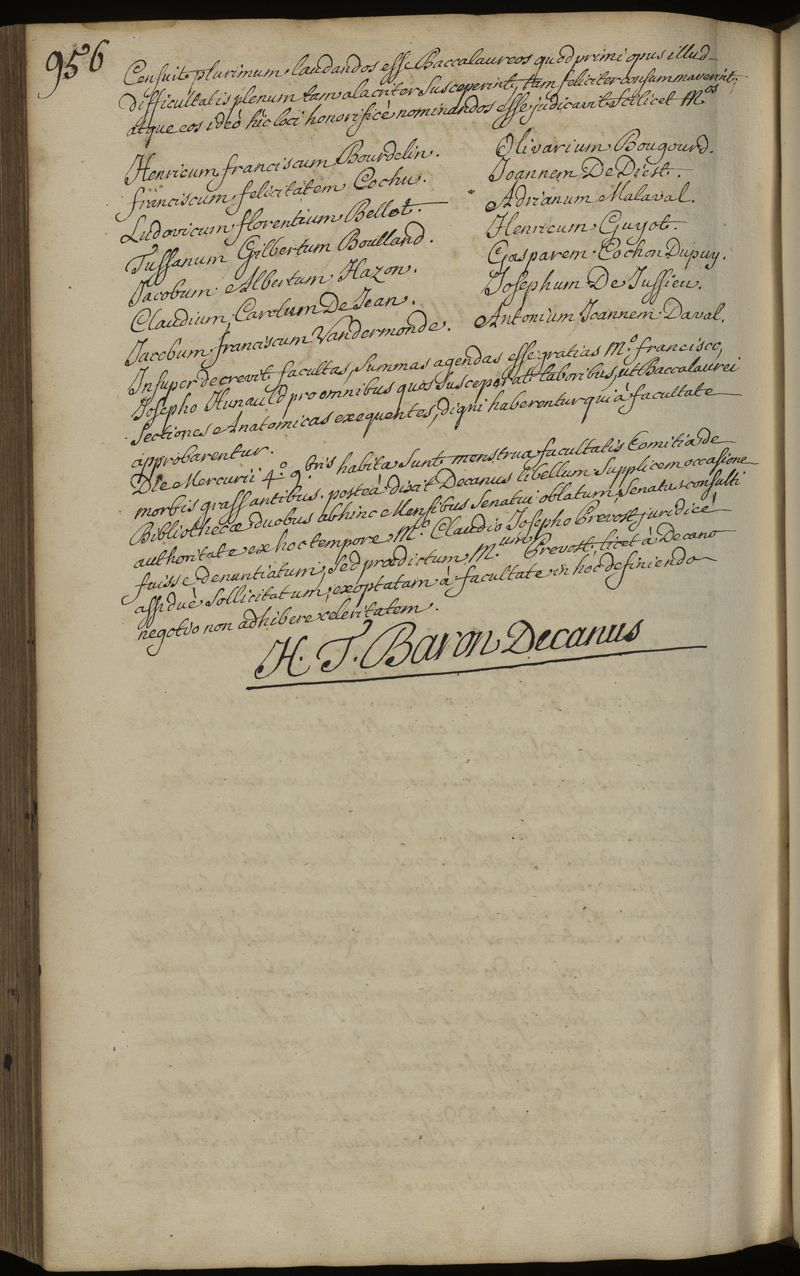 956
Censuit plurimum laudandos esse Baccalaureos quod primi opus illud
difficultatis plenum tam alacriter susceperint, tam feliciter consummaverint;
atque eos ideò hîc loci honorificè nominandos esse judicavit scilicet M^os
Henricum franciscum Bourdelin.
franciscum felicitatem Cochu.
Ludovicum florentium Bellot.
Tussanum Gilbertum Boulland.
Jacobum Albertum Hazon.
Claudium Carolum De Jean.
Jacobum franciscum Vandermonde.
Olivarium Bougourd.
Joannem De Diest.
Adrianum Malaval.
Henricum Guyot.
Gasparem Cochon Dupuy.
Josephum De Jussieu.
Antonium Joannem Daval.
Insuper decrevit facultas, summas agendas esse gratias M^o. francisco
Josepho Hunauld pro omnibus quos susceperat laboribus, ut Baccalaurei
sectiones Anatomicas exequentes, digni haberentur qui à facultate
approbarentur.
Die Mercurii 4^o. 9^bris habita sunt menstrua facultatis Comitia de
morbis grassantibus. posteà dixit Decanus libellum supplicem occasione
Bibliothecæ duobus abhinc Mensibus senatui oblatum, senatus consulti
authoritate ex hoc tempore M^o. Claudio Josepho Prevost juridicè
fuisse denuntiatum; sed prædictum M^um Prevost, licet à Decano
assiduè sollicitatum, exoptatam à facultate in hoc definiendo
negotio non adhibere celeritatem.
H. T. Baron Decanus